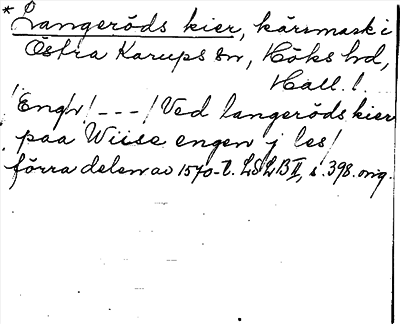 * Langeröds kier, kärrmask i
Östra Karups sn, Höks hd,
Hall. l.
/Engh/ --- / Ved langeröds kier
paa Wiise engen j les/
förra delen av 1570-t. LSLB II, s. 398. orig.